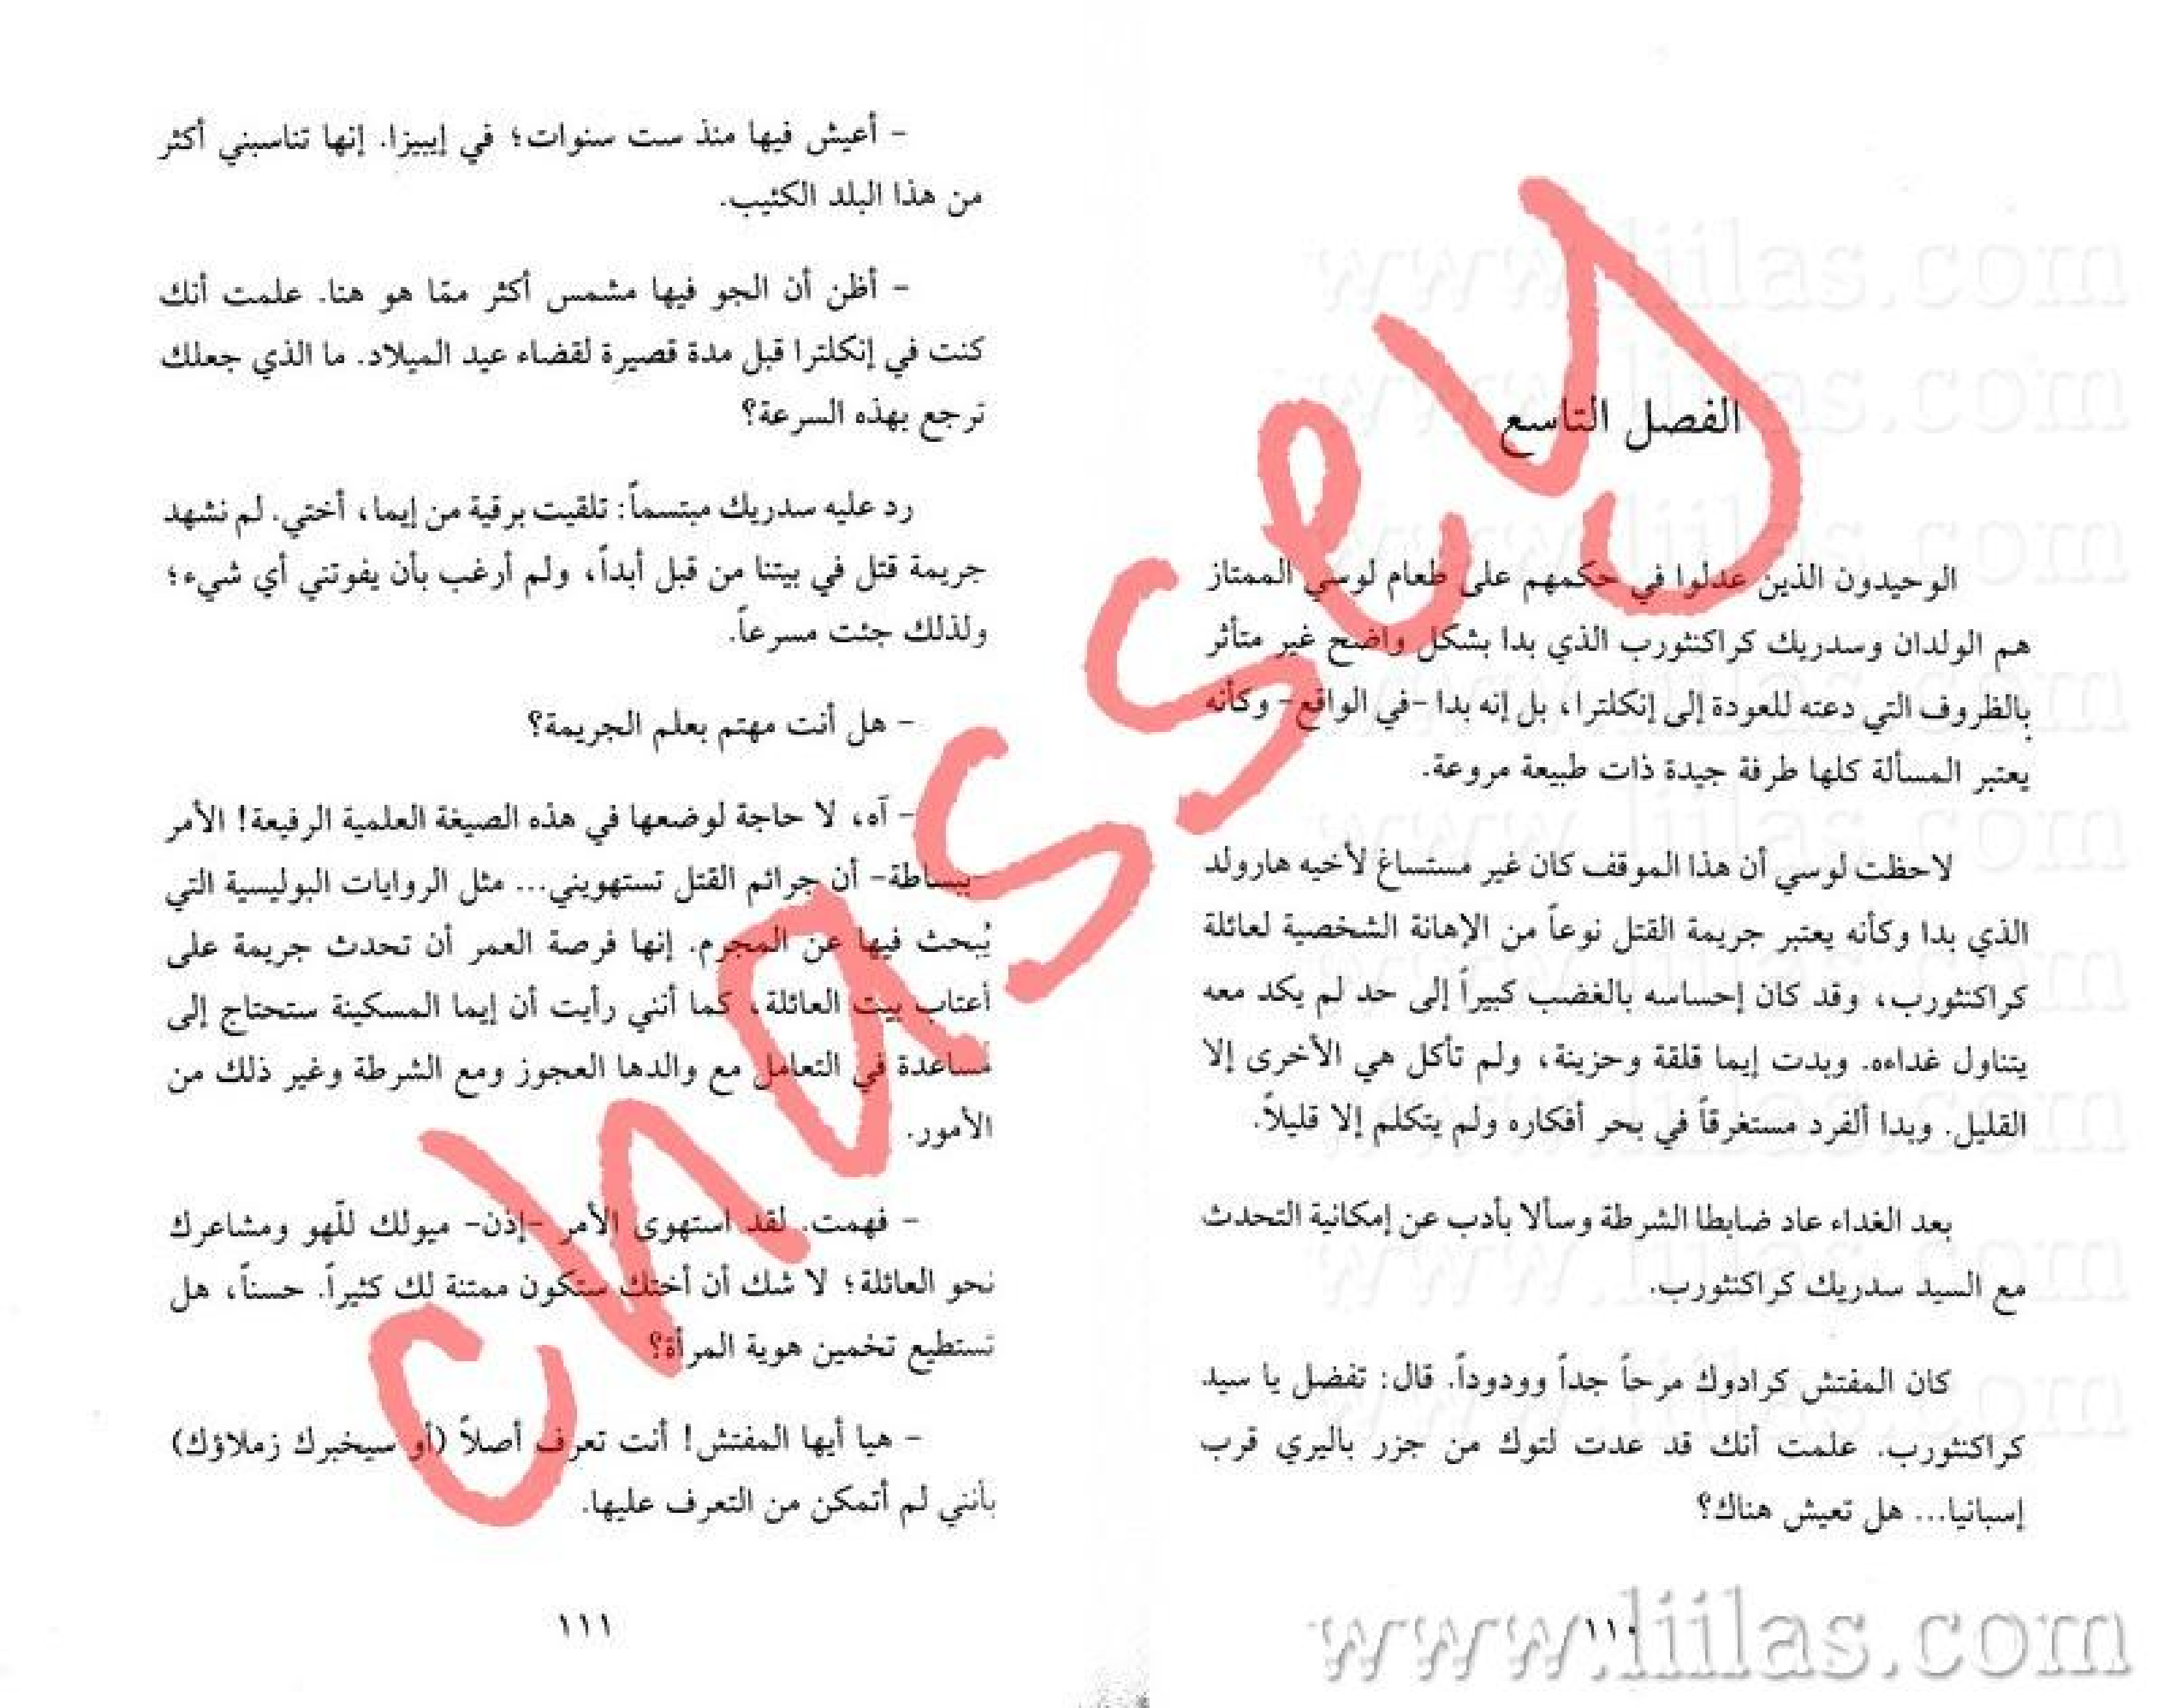 الفصل التاسع
الوحيدون الذين عدلوا في حكمهم على طعام لوسي الممتاز
هم الولدان وسدريك كراكنثورب الذي بدا بشكل واضح غير متأثر
بالظروف التي دعته للعودة إلى إنكلترا، بل إنه بدا -في الواقع- وكأنه
يعتبر المسألة كلها طرفة جيدة ذات طبيعة مروعة.
لاحظت لوسي أن هذا الموقف كان غير مستساغ لأخيه هارولد
الذي بدا وكأنه يعتبر جريمة القتل نوعاً من الإهانة الشخصية لعائلة
كراكنثورب، وقد كان إحساسه بالغضب كبيراً إلى حد لم يكد معه
يتناول غداءه. وبدت إيما قلقة وحزينة، ولم تأكل هي الأخرى إلا
القليل. وبدا ألفرد مستغرقاً في بحر أفكاره ولم يتكلم إلا قليلاً.
بعد الغداء عاد ضابطا الشرطة وسألا بأدب عن إمكانية التحدث
مع السيد سدريك كراكنثورب.
كان المفتش كرادوك مرحاً جداً وودوداً. قال: تفضل يا سيد
كراكنثورب. علمت أنك قد عدت لتوك من جزر باليري قرب
إسبانيا... هل تعيش هناك؟
١١٠
- أعيش فيها منذ ست سنوات؛ في إيبيزا. إنها تناسبني أكثر
من هذا البلد الكئيب.
- أظن أن الجو فيها مشمس أكثر ممّا هو هنا. علمت أنك
كنت في إنكلترا قبل مدة قصيرة لقضاء عيد الميلاد. ما الذي جعلك
ترجع بهذه السرعة؟
رد عليه سدريك مبتسماً: تلقيت برقية من إيما، أختي. لم نشهد
جريمة قتل في بيتنا من قبل أبداً، ولم أرغب بأن يفوتني أي شيء؛
ولذلك جئت مسرعاً.
- هل أنت مهتم بعلم الجريمة؟
- آه، لا حاجة لوضعها في هذه الصيغة العلمية الرفيعة! الأمر
-ببساطة- أن جرائم القتل تستهويني... مثل الروايات البوليسية التي
يُبحث فيها عن المجرم. إنها فرصة العمر أن تحدث جريمة على
أعتاب بيت العائلة، كما أنني رأيت أن إيما المسكينة ستحتاج إلى
مساعدة في التعامل مع والدها العجوز ومع الشرطة وغير ذلك من
الأمور.
- فهمت. لقد استهوى الأمر -إذن- ميولك للّهو ومشاعرك
نحو العائلة؛ لا شك أن أختك ستكون ممتنة لك كثيراً. حسناً، هل
تستطيع تخمين هوية المرأة؟
- هيا أيها المفتش! أنت تعرف أصلاً (أو سيخبرك زملاؤك)
بأنني لم أتمكن من التعرف عليها.
١١١
chassey
www.liilas.com
www.liilas.com
www.liilas.com
www.liilas.com
www.liilas.com
www.liilas.com
www.liilas.com
www.liilas.com
www.liilas.com
www.liilas.com